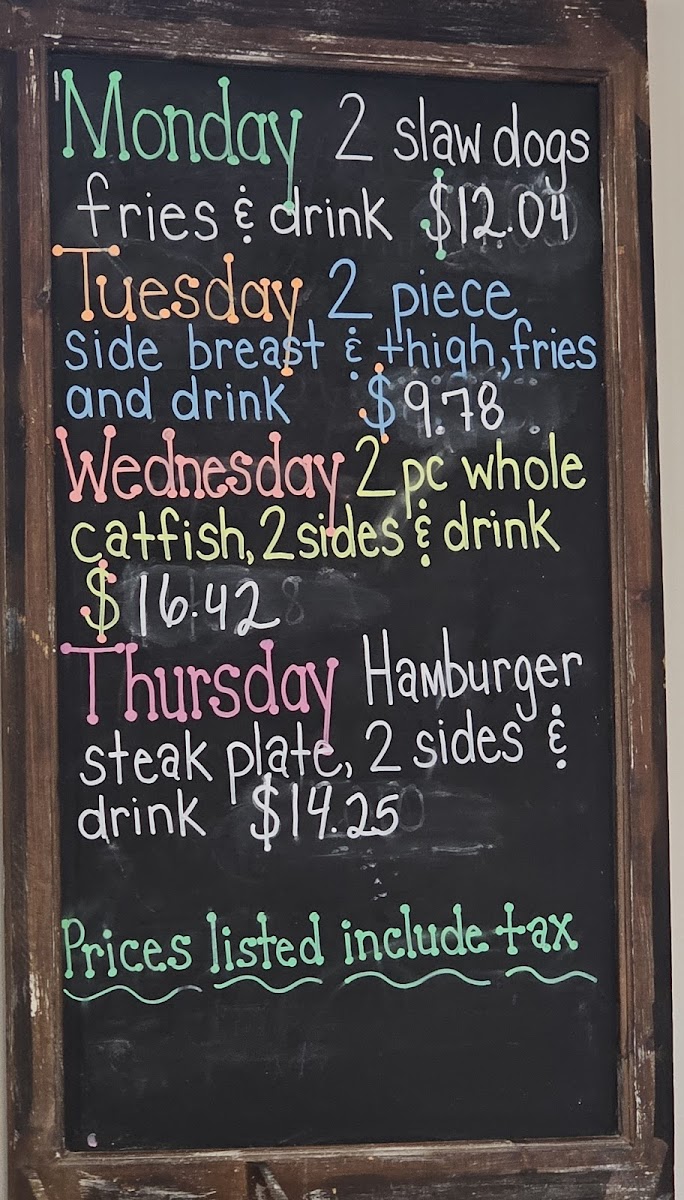 Monday 2 slaw dogs
fries & drink $12.04
Tuesday 2 piece
side breast & thigh, fries
and drink $9.78
Wednesday 2 pc whole
catfish, 2 sides & drink
$16.42
Thursday Hamburger
steak plate, 2 sides &
drink $14.25
Prices listed include tax